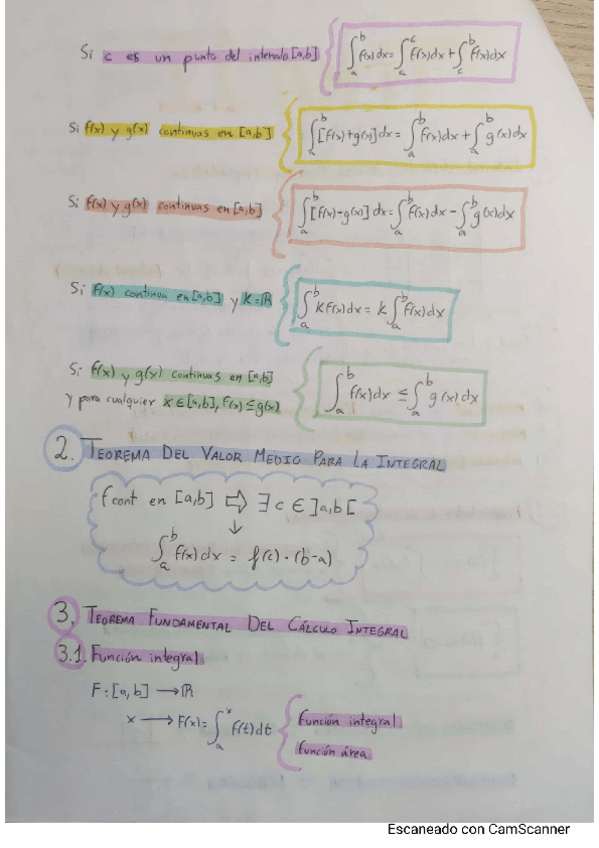 Si c es un punto del intervalo [a,b] { ∫_a^b f(x)dx = ∫_a^c f(x)dx + ∫_c^b f(x)dx
Si f(x) y g(x) continuas en [a,b] { ∫_a^b [f(x)+g(x)]dx = ∫_a^b f(x)dx + ∫_a^b g(x)dx
Si f(x) y g(x) continuas en [a,b] { ∫_a^b [f(x)-g(x)]dx = ∫_a^b f(x)dx - ∫_a^b g(x)dx
Si f(x) continua en [a,b] y K=ℝ { ∫_a^b K f(x)dx = K ∫_a^b f(x)dx
Si f(x) y g(x) continuas en [a,b]
y para cualquier x∈[a,b], f(x)≤g(x) { ∫_a^b f(x)dx ≤ ∫_a^b g(x)dx
2. TEOREMA DEL VALOR MEDIO PARA LA INTEGRAL
f cont en [a,b] ⇨ ∃ c ∈ ]a,b[
↓
∫_a^b f(x)dx = f(c)·(b-a)
3. TEOREMA FUNDAMENTAL DEL CÁLCULO INTEGRAL
3.1. Función integral
F: [a,b] → ℝ
x → F(x) = ∫_a^x f(t)dt { función integral
función área
Escaneado con CamScanner